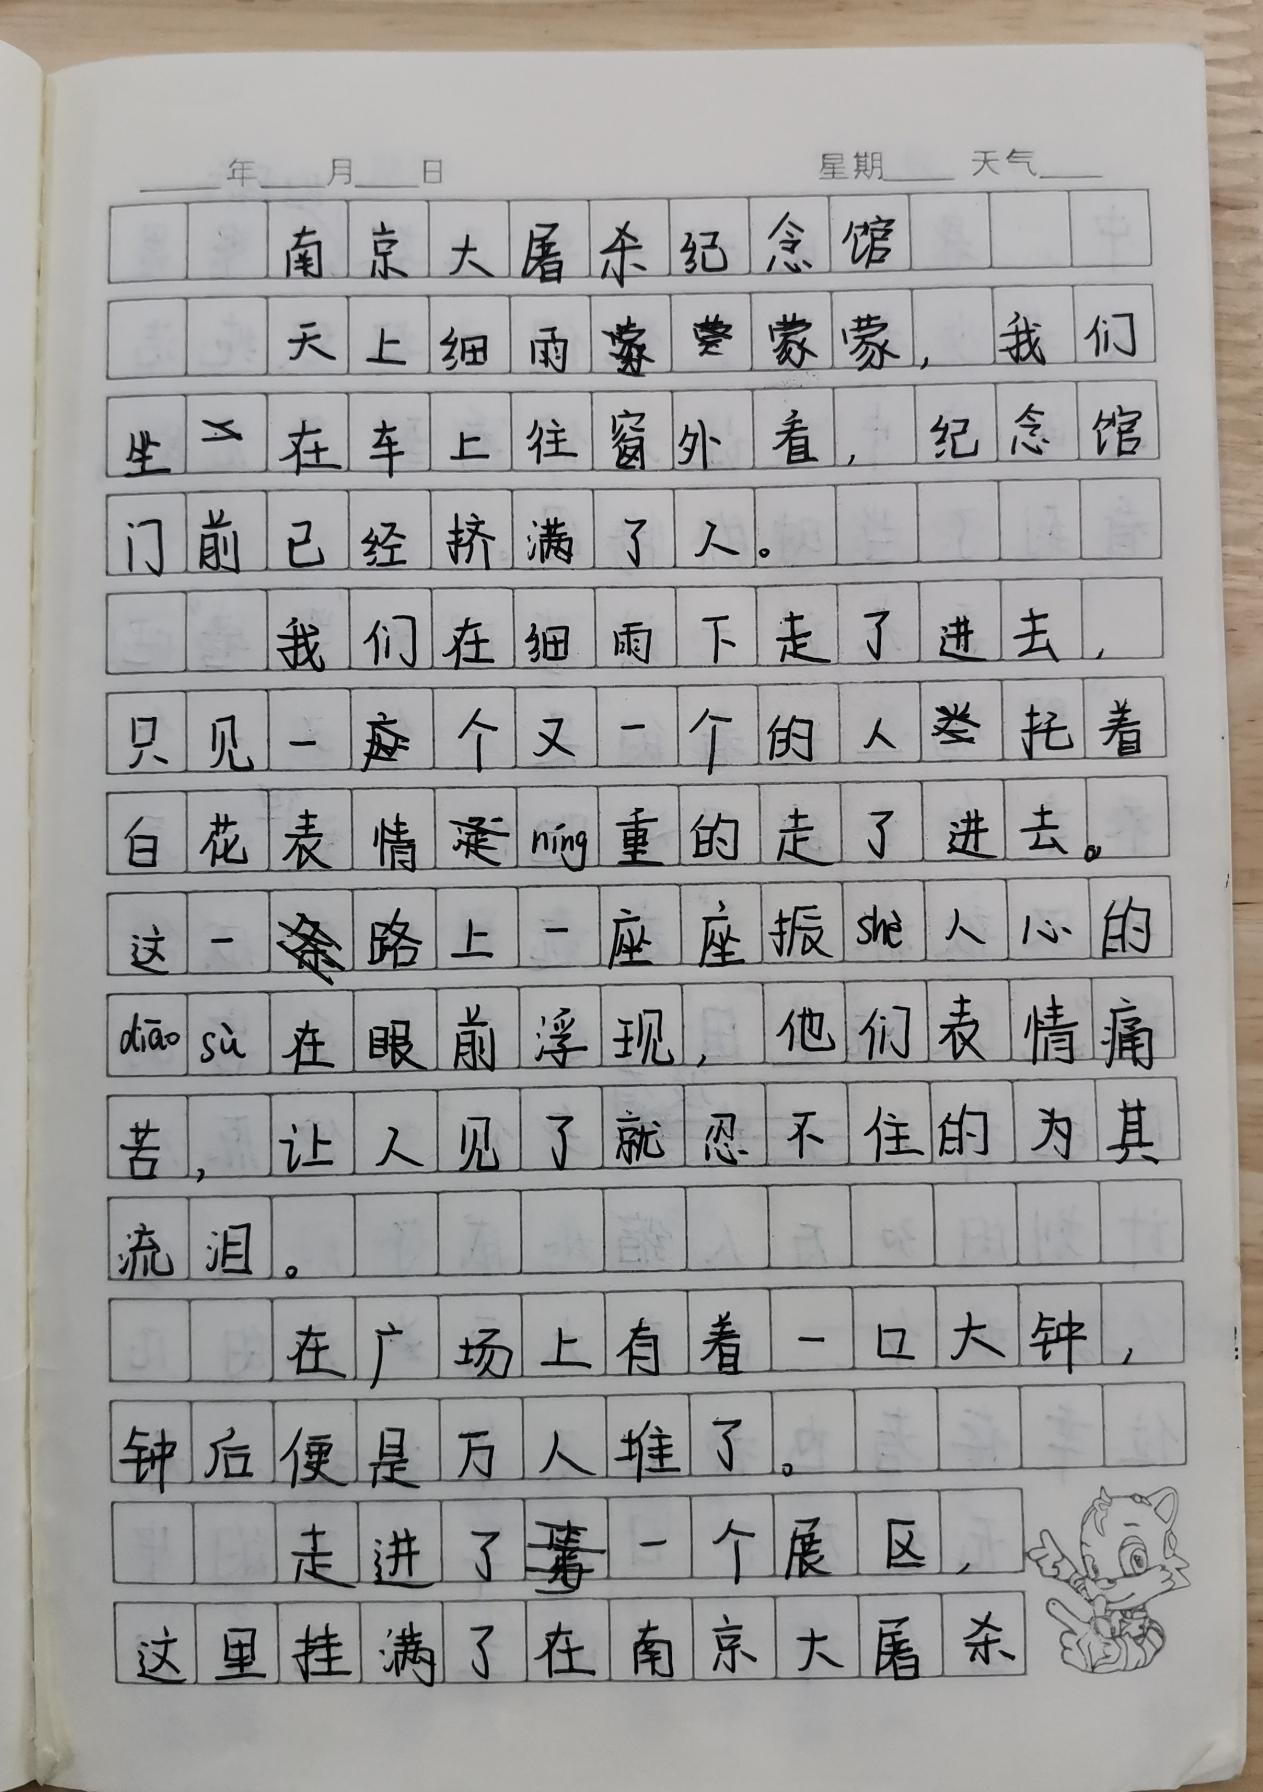 年 月 日 星期 天气
南京大屠杀纪念馆
天上细雨蒙蒙，我们
坐在车上往窗外看，纪念馆
门前已经挤满了人。
我们在细雨下走了进去，
只见一个又一个的人托着
白花表情níng重的走了进去。
这一路上一座座振shè人心的
diāo sù在眼前浮现，他们表情痛
苦，让人见了就忍不住的为其
流泪。
在广场上有着一口大钟，
钟后便是万人堆了。
走进了一个展区，
这里挂满了在南京大屠杀